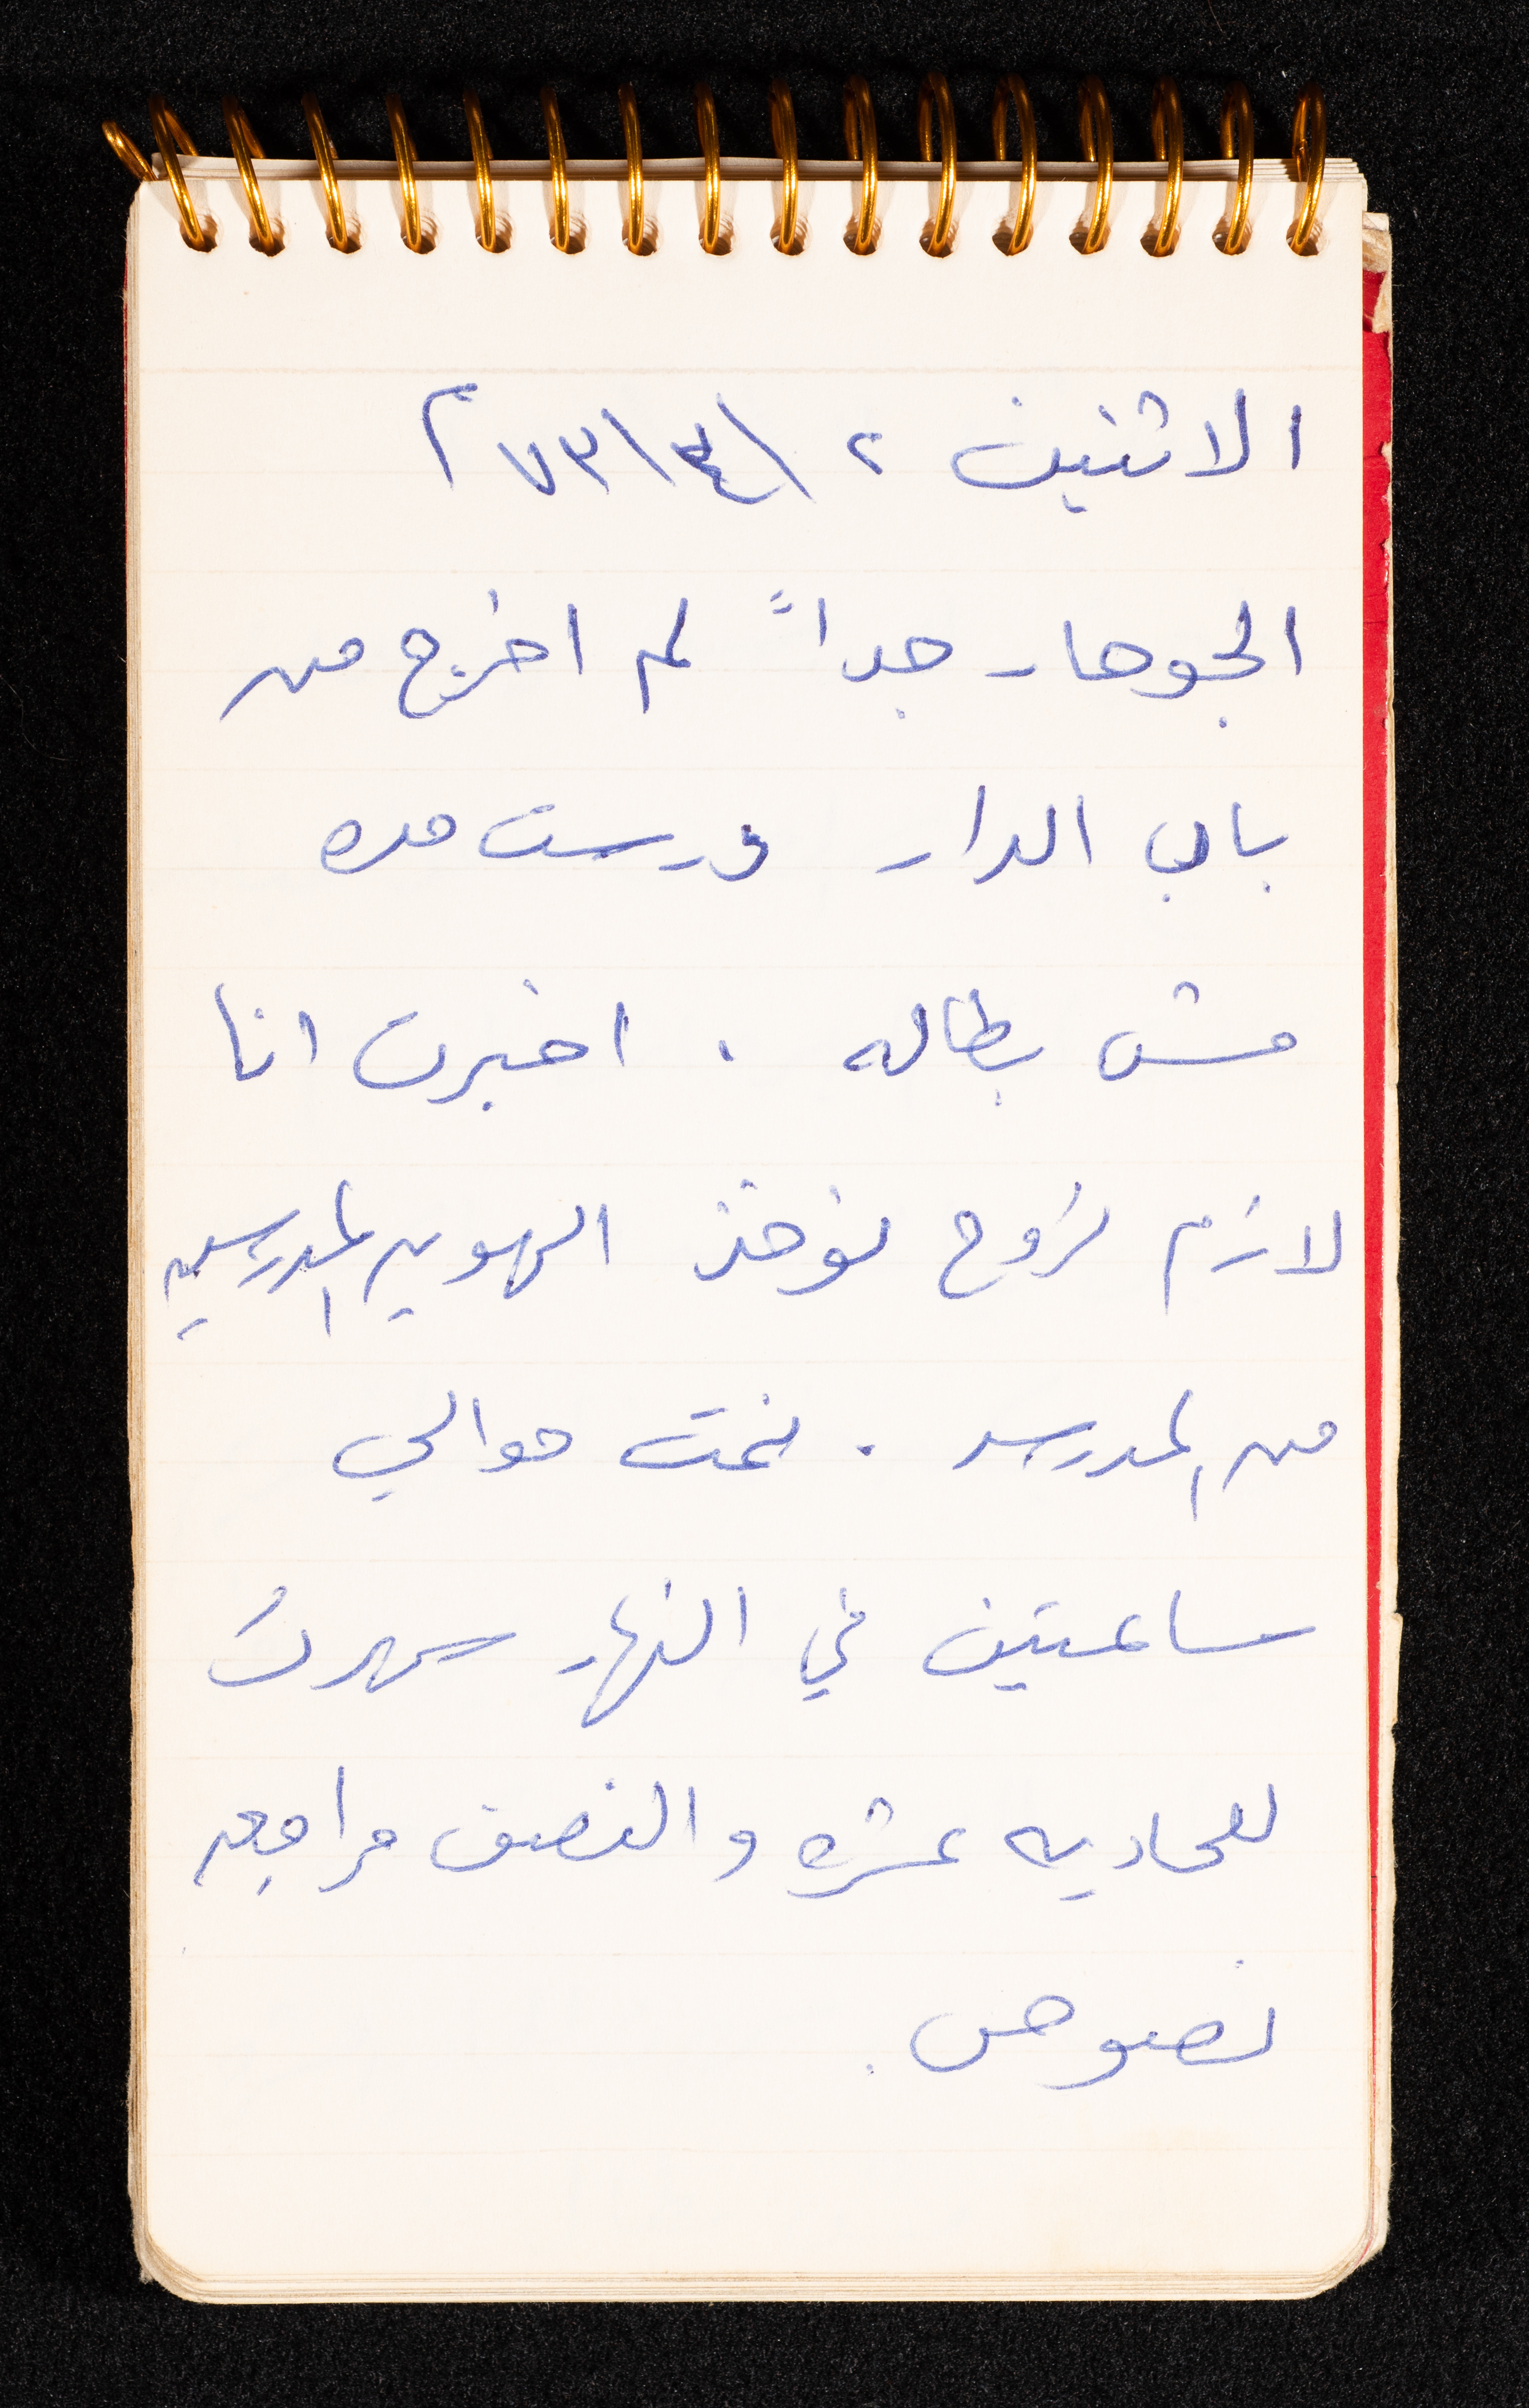 الاثنين ٢ \ ٤ \ ٧٣ م
الجو حار جداً لم اخرج من
باب الدار درست مده
مش بطاله . اخبرت انا
لازم نروح نوخذ الهويه المدرسيه
من المدرسه . نمت حوالي
ساعتين في النهار سهرت
للحاديه عشره والنصف مراجعه
نصوص .